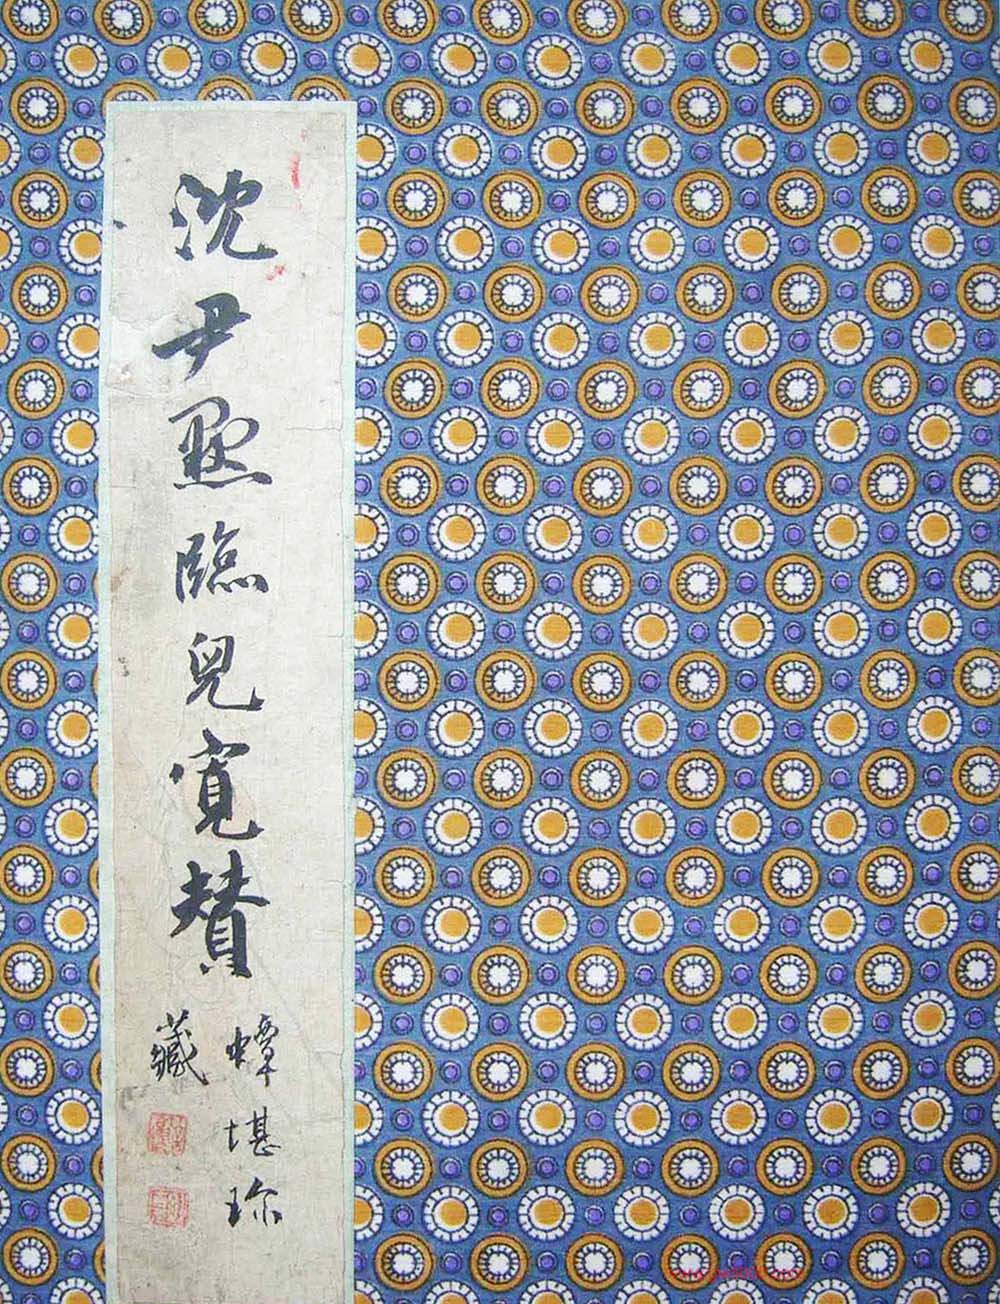 沈尹默臨兒寬贊
蟫堪珍
藏